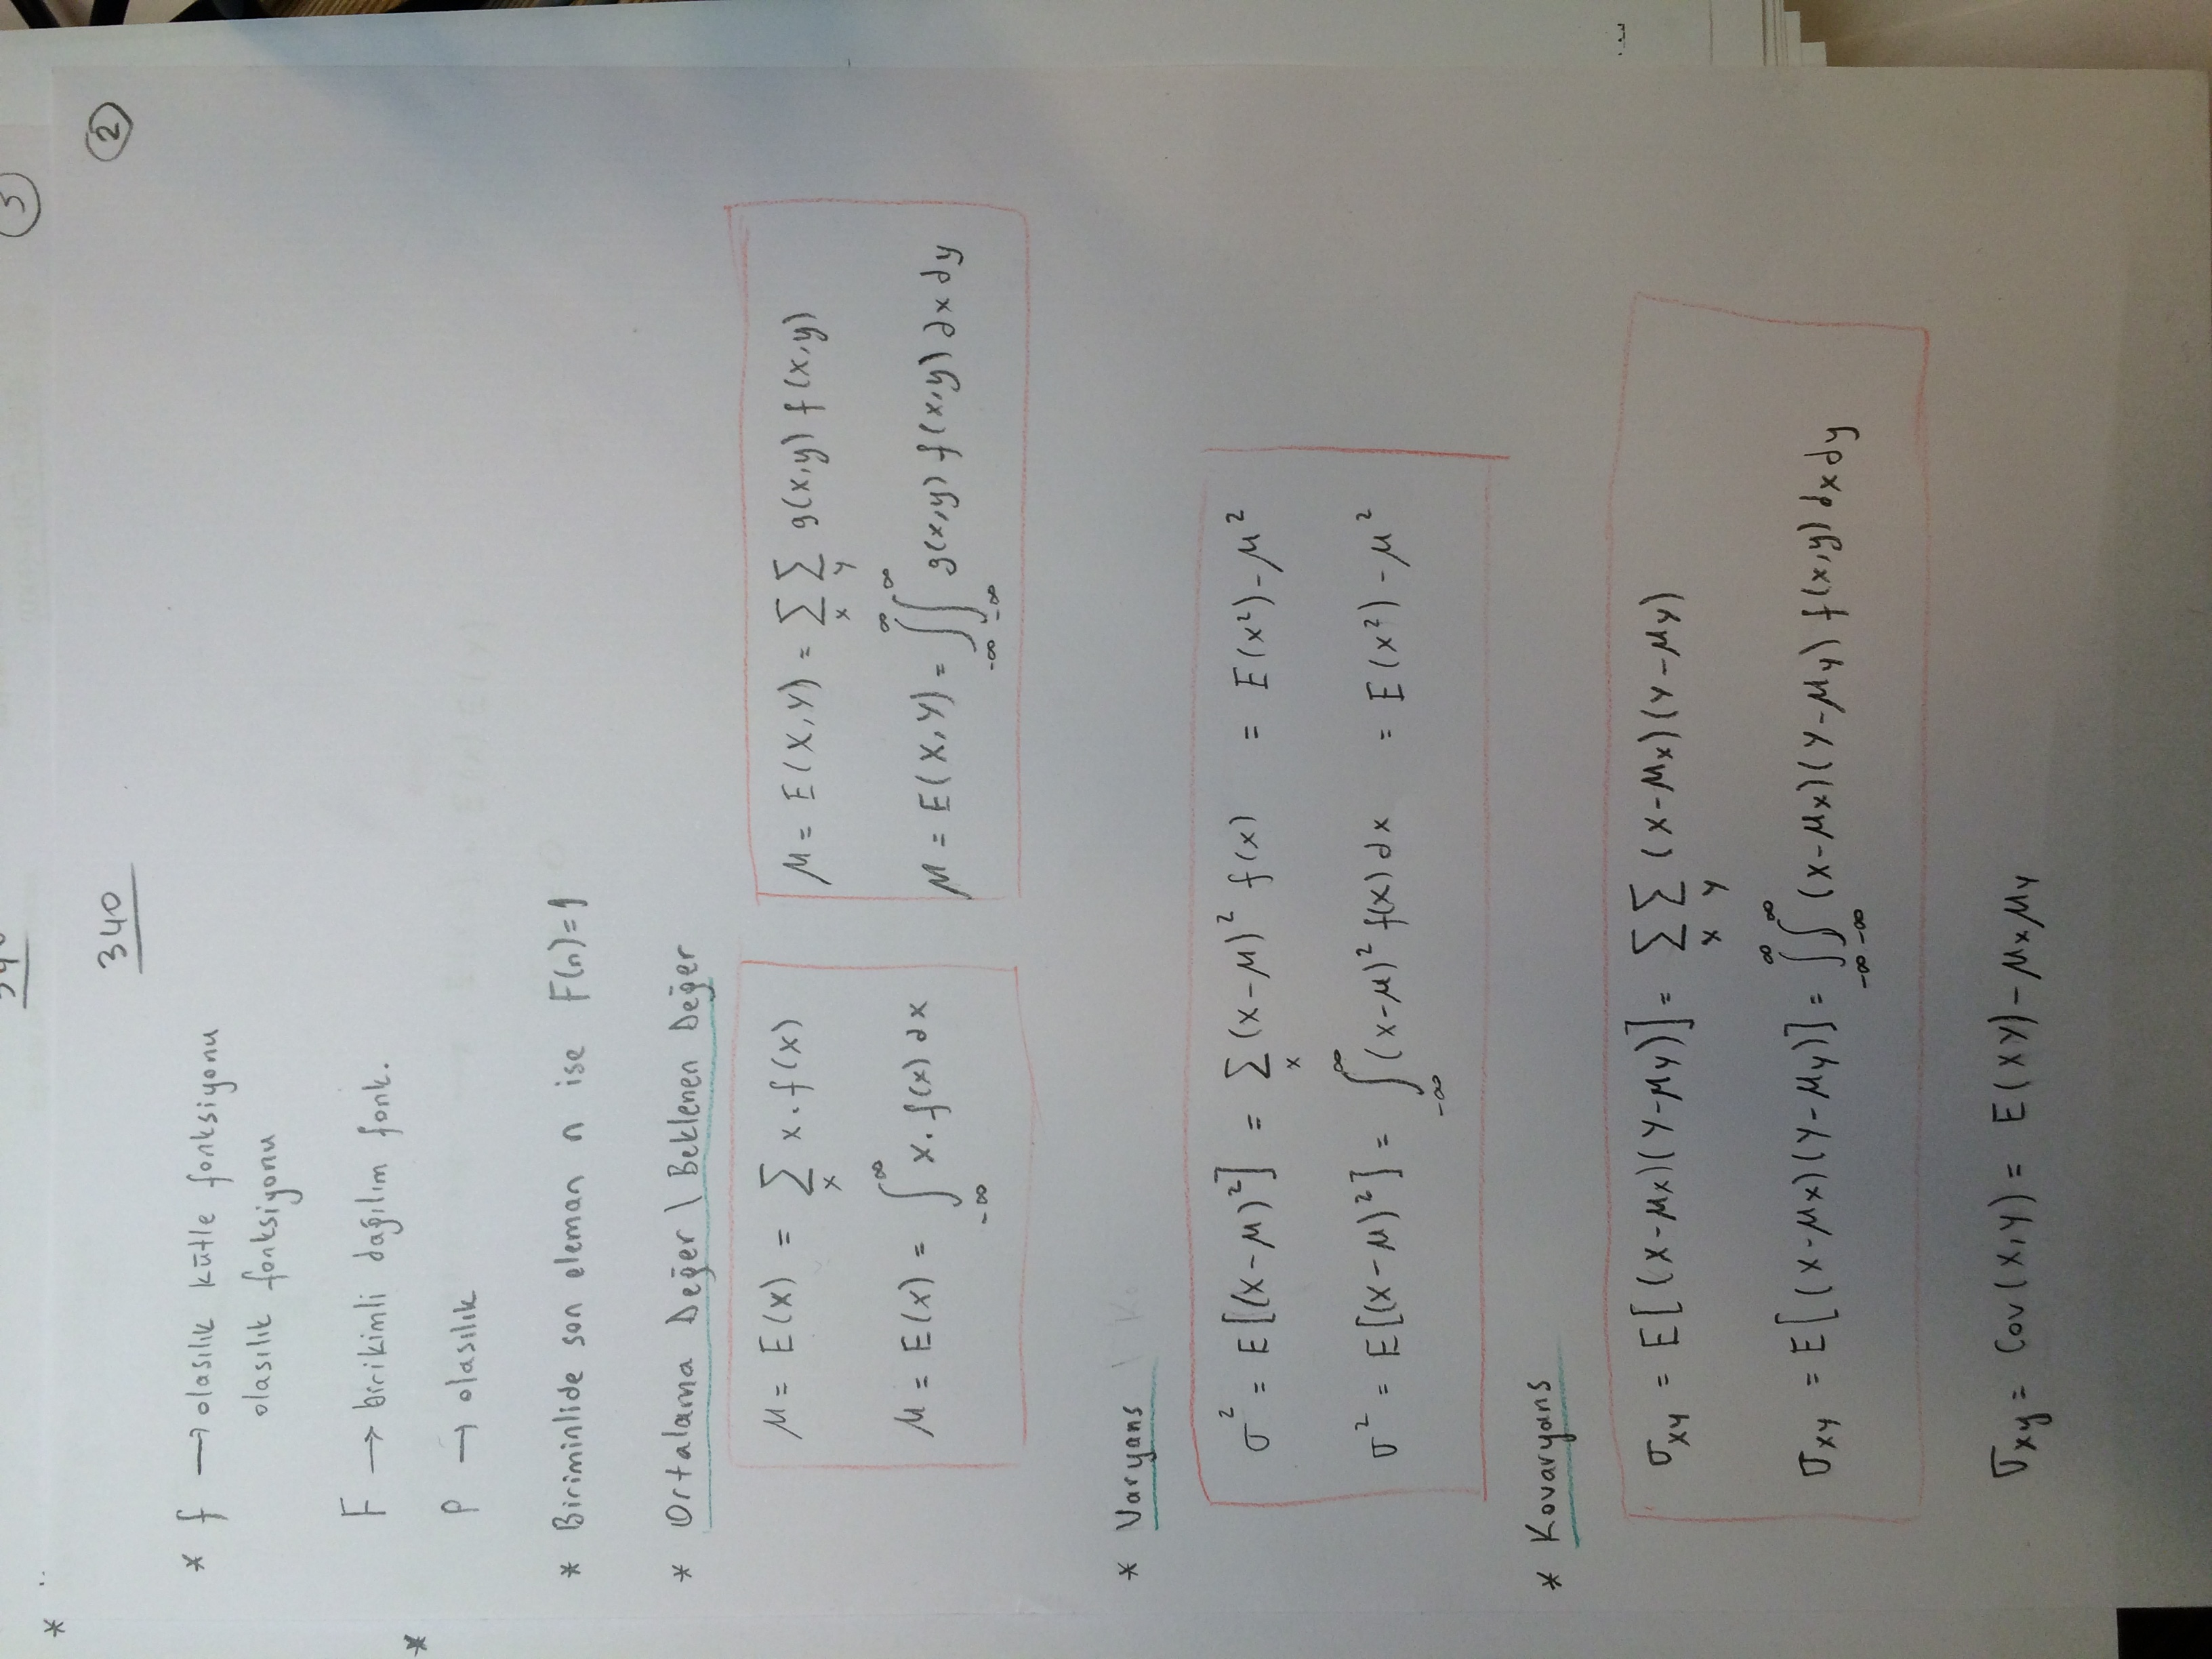 340
3
*
340
2
* f → olasılık kütle fonksiyonu
olasılık fonksiyonu
F → birikimli dağılım fonk.
*
P → olasılık
* Biriminlide son eleman n ise F(n)=1
* Ortalama Değer \ Beklenen Değer
μ = E(x) = ∑_x x. f(x)
μ = E(x) = ∫_{-∞}^{∞} x. f(x) dx
μ = E(X,Y) = ∑_x ∑_y g(x,y) f(x,y)
μ = E(X,Y) = ∫_{-∞}^{∞} ∫_{-∞}^{∞} g(x,y) f(x,y) dx dy
* Varyans
σ² = E[(x-μ)²] = ∑_x (x-μ)² f(x) = E(x²) - μ²
σ² = E[(x-μ)²] = ∫_{-∞}^{∞} (x-μ)² f(x) dx = E(x²) - μ²
* Kovaryans
σ_xy = E[(x-μx)(y-μy)] = ∑_x ∑_y (x-μx)(y-μy)
σ_xy = E[(x-μx)(y-μy)] = ∫_{-∞}^{∞} ∫_{-∞}^{∞} (x-μx)(y-μy) f(x,y) dx dy
σ_xy = Cov(x,y) = E(XY) - μx μy